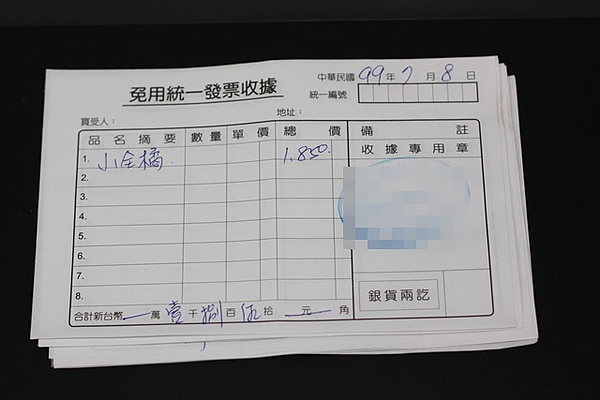 免用統一發票收據
中華民國 99 年 7 月 8 日
統一編號
買受人：
地址：
品名摘要 數量 單價 總價 備註
1. 小金橘 1,850. 收據專用章
2.
3.
4.
5.
6.
7.
8.
銀貨兩訖
合計新台幣 — 萬 壹 千 捌 百 伍 拾 — 元 — 角